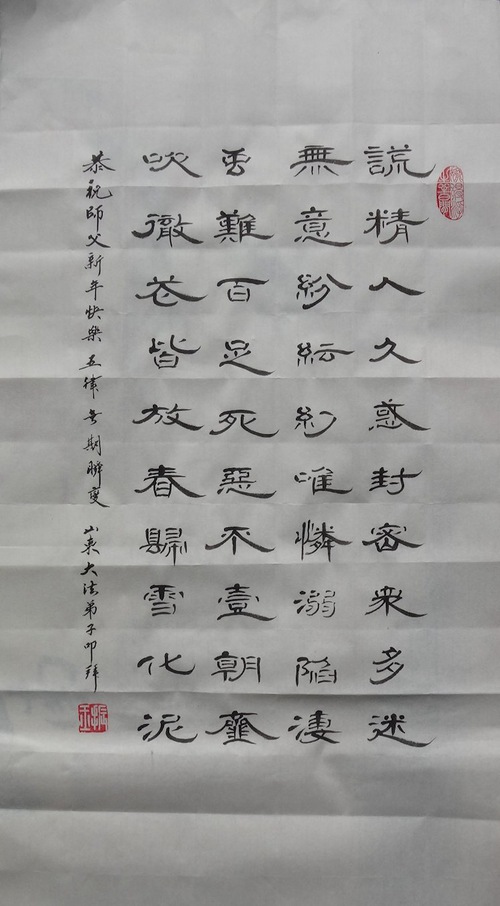 謊精人久惑封密衆多迷
無意紛紜幻唯憐溺陷淒
難百足死惡不壹朝齏
吹徹花皆放春歸雪化泥
恭祝師父新年快樂 五律 期變 山東大法弟子叩拜